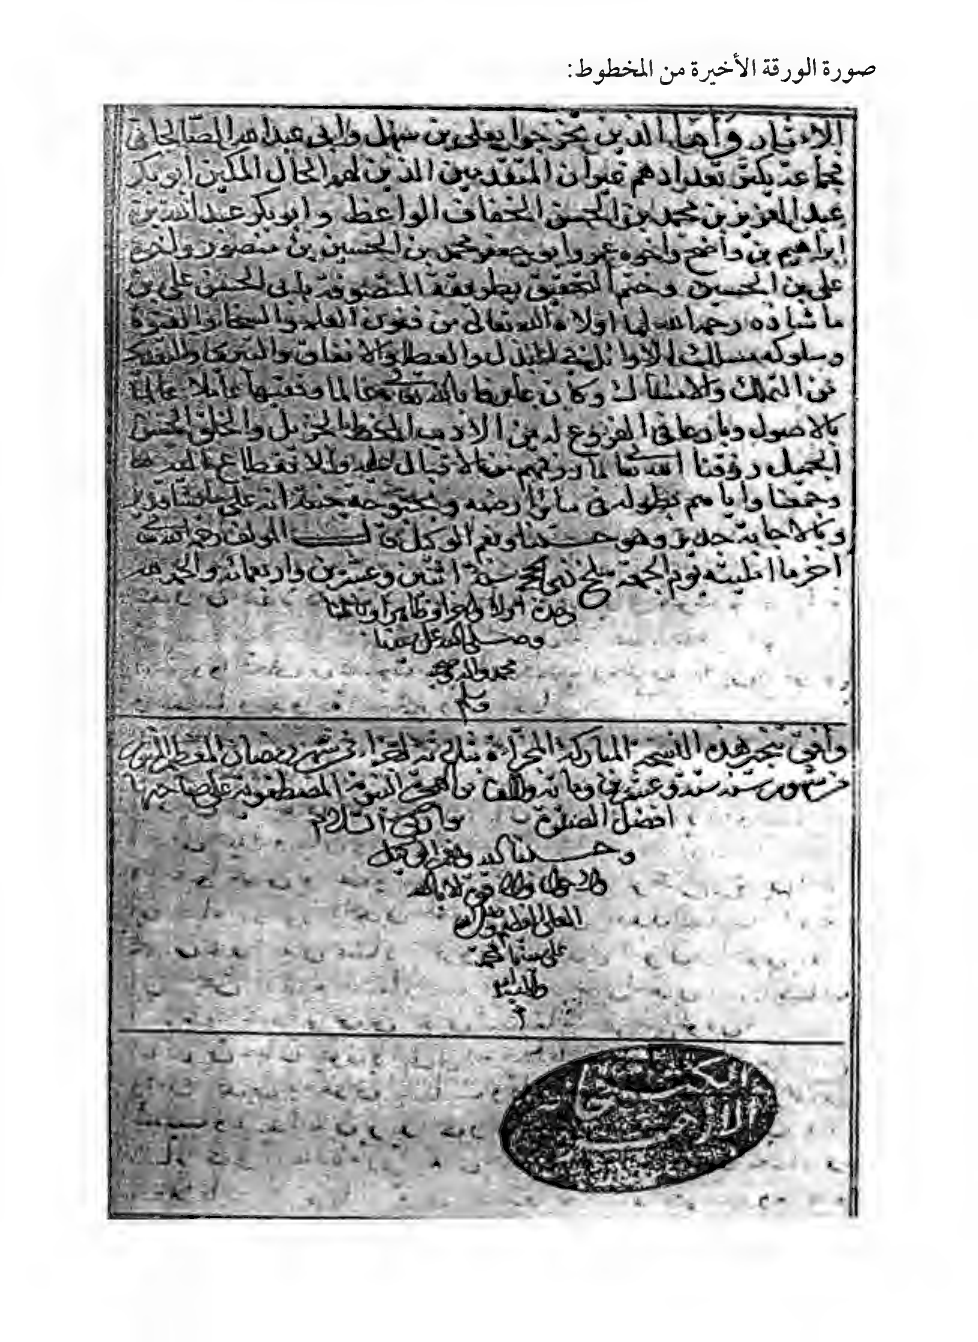 صورة الورقة الأخيرة من المخطوط:
الذين تخرجوا بعلي بن سهل وأبي عبد الله الصالحاني
جماعة يكثر تعدادهم غير أن المتقدمين الذين لهم الحال المكين أبو بكر
عبد العزيز بن محمد بن الحسن الخفاف الواعظ وأبو بكر عبد الله بن
إبراهيم بن واضح وأخوه عمر وأبو جعفر محمد بن الحسين بن منصور وأخوه
علي بن الحسين وختم التحقيق بطريقة المتصوفة بأبي الحسن علي بن
ما شاذه رحمه الله لما أولاه الله تعالى من فنون العلم والسخاء والفتوة
وسلوكه مسلك الأوائل في البذل والعطاء والإنفاق والتبري
من التملك والإمساك وكان عارفا بالله تعالى عالما وفقيها عاملا عالما
بالأصول وبارعا في الفروع له من الأدب الحظ الجزيل والخلق الحسن
الجميل رزقنا الله تعالى ما رزقهم من الإقبال عليه والانقطاع
وجمعنا وإياهم بطوله في سائر أرضه وبحبوحة جنته إنه على ما يشاء قدير
وبالإجابة جدير وهو حسبنا ونعم الوكيل قال المؤلف رحمه الله تعالى
آخر ما أمليته يوم الجمعة سلخ ذي الحجة سنة اثنتين وعشرين وأربعمائة والحمد لله
وحده أولا وآخرا وظاهرا وباطنا
وصلى الله على سيدنا
محمد وآله وصحبه
وسلم
وافق نجز هذه النسخة المباركة
من شهور سنة ستة وعشرين ومائة وألف من الهجرة النبوية المصطفوية على صاحبها
أفضل الصلاة وأزكى السلام
وحسبنا الله ونعم الوكيل
ولا حول ولا قوة إلا بالله
العلي العظيم
على سيدنا محمد
م
الكتبخانة
الأزهرية